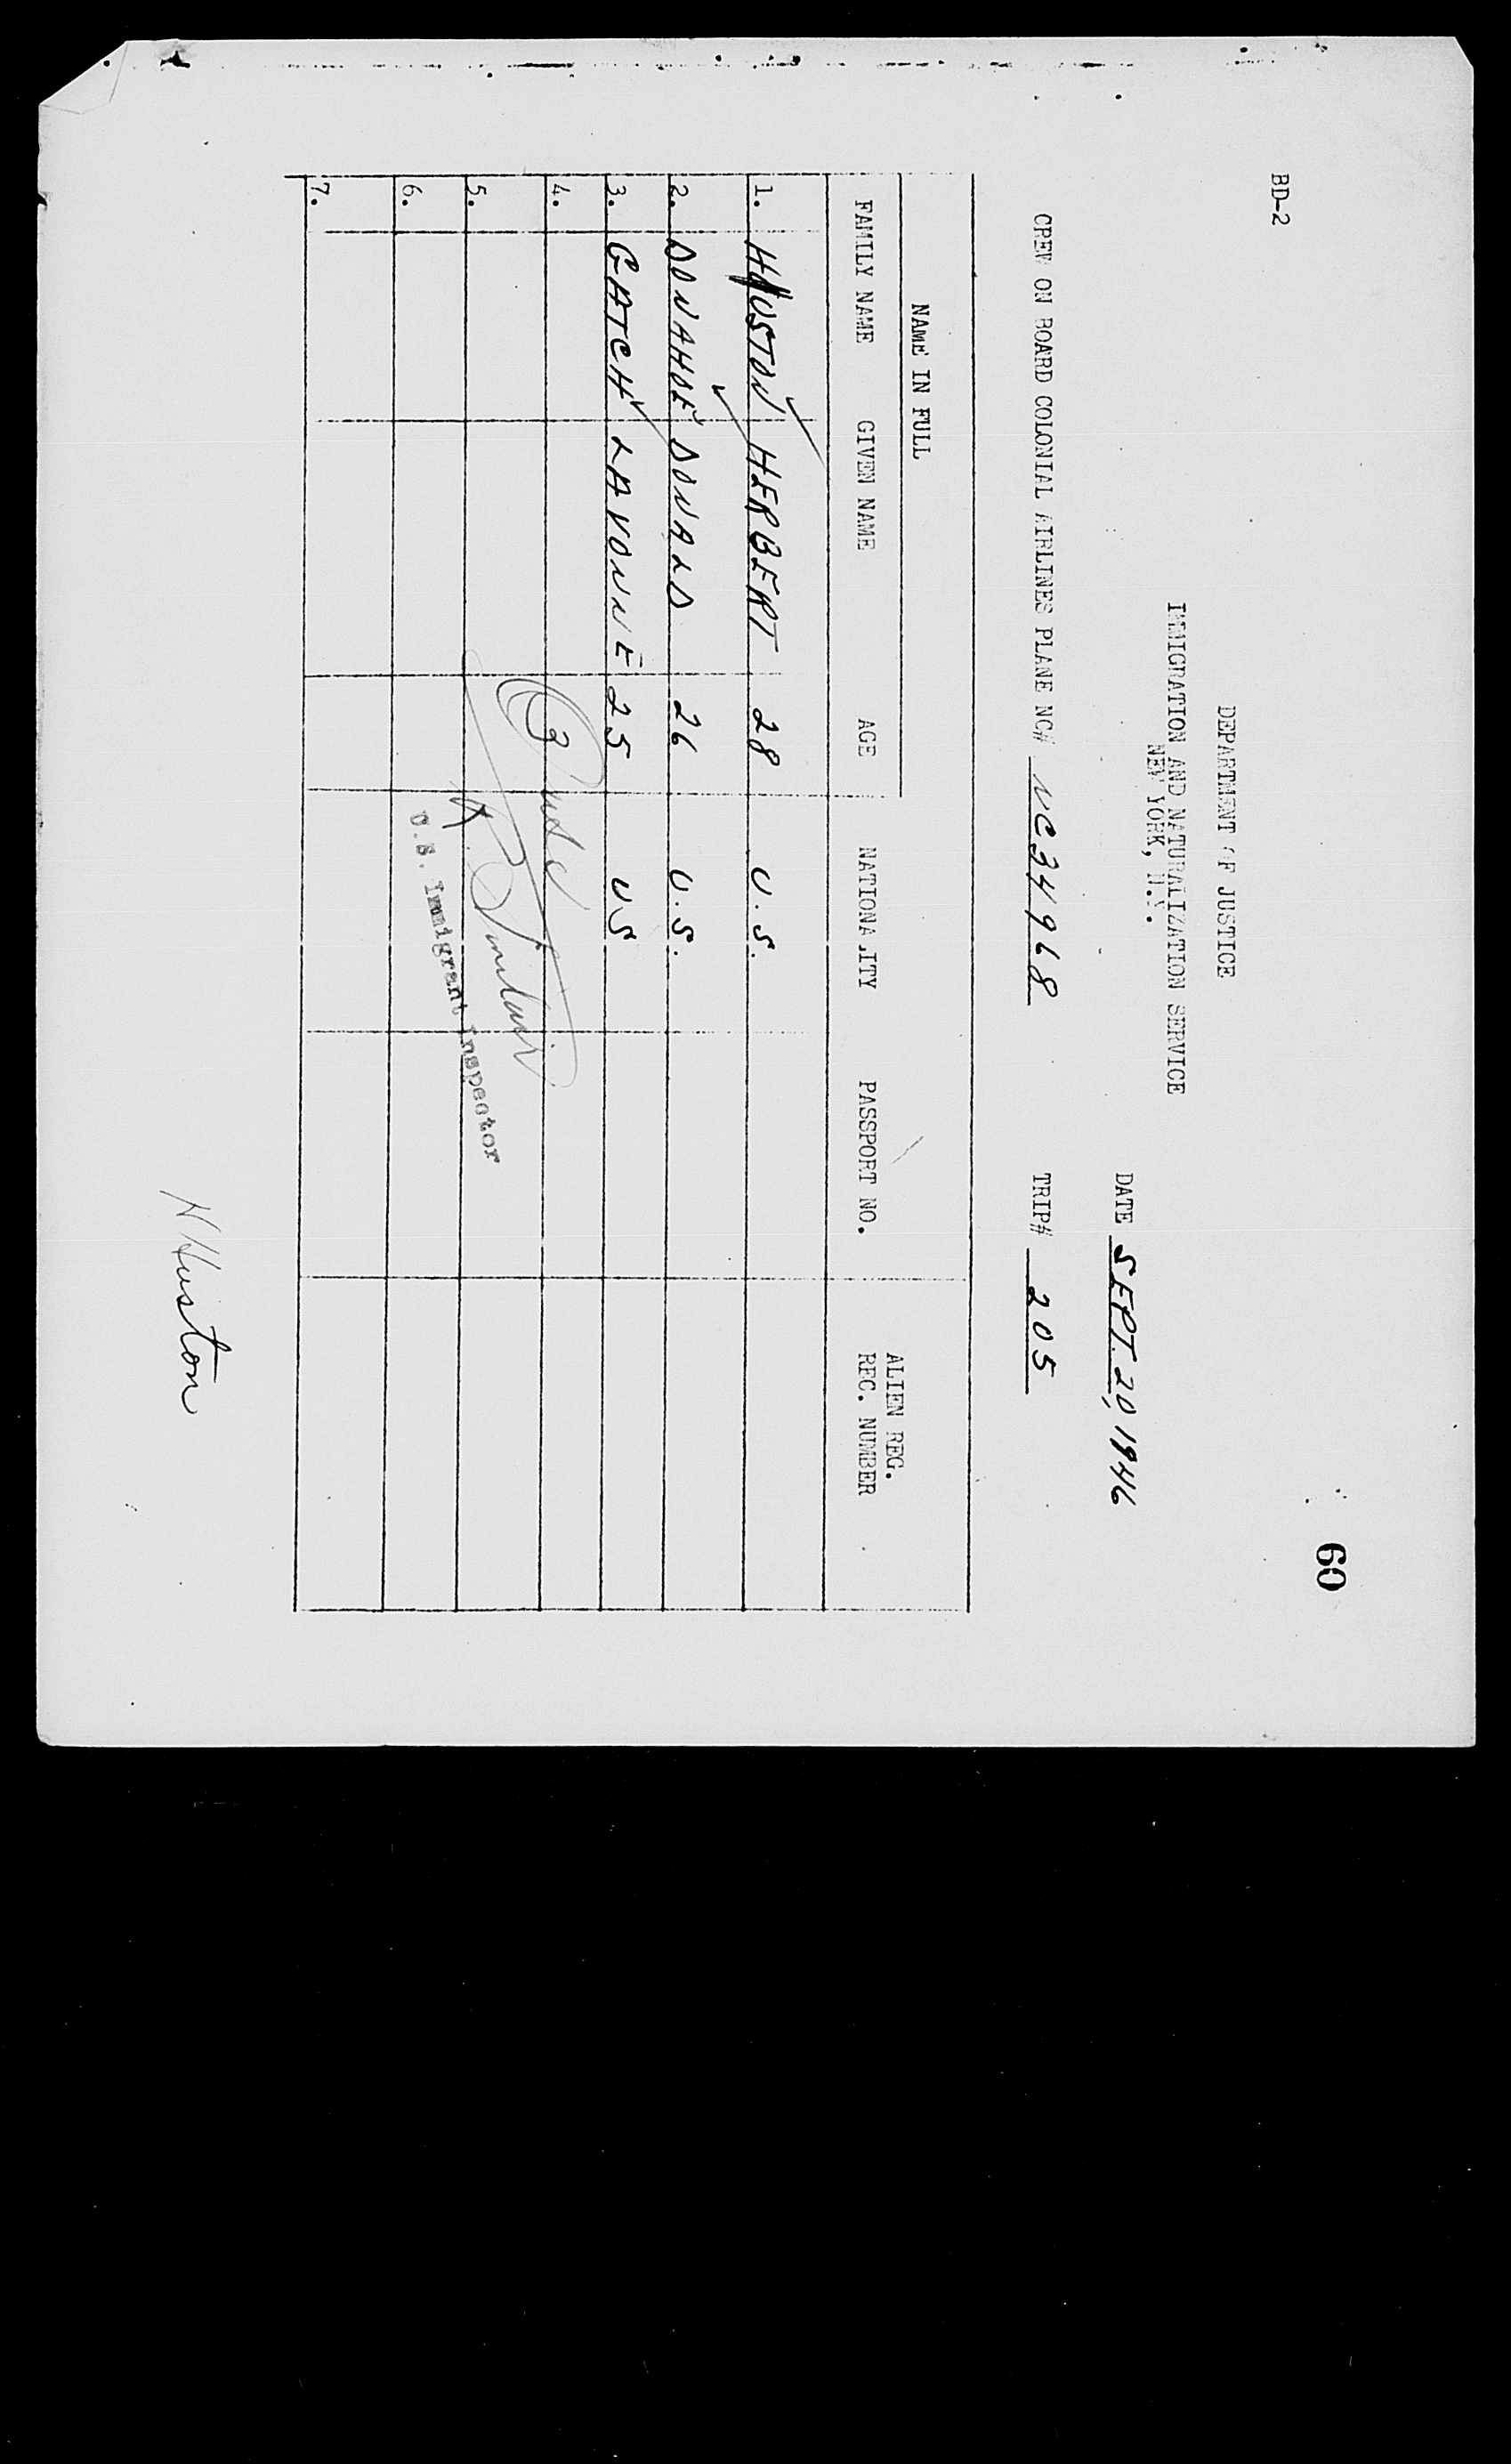 60
BD-2
DEPARTMENT OF JUSTICE
IMMIGRATION AND NATURALIZATION SERVICE
NEW YORK, N.Y.
DATE SEPT. 20, 1946
CREW ON BOARD COLONIAL AIRLINES PLANE NC# NC34968 TRIP# 205
NAME IN FULL
FAMILY NAME GIVEN NAME AGE NATIONALITY PASSPORT NO. ALIEN REG. REC. NUMBER
1. HUSTON HERBERT 28 U.S.
2. DONAHOE DONALD 26 U.S.
3. GATCH LAVONNE 25 US
4.
3
5.
6.
U.S. Immigrant Inspector
7.
H Huston